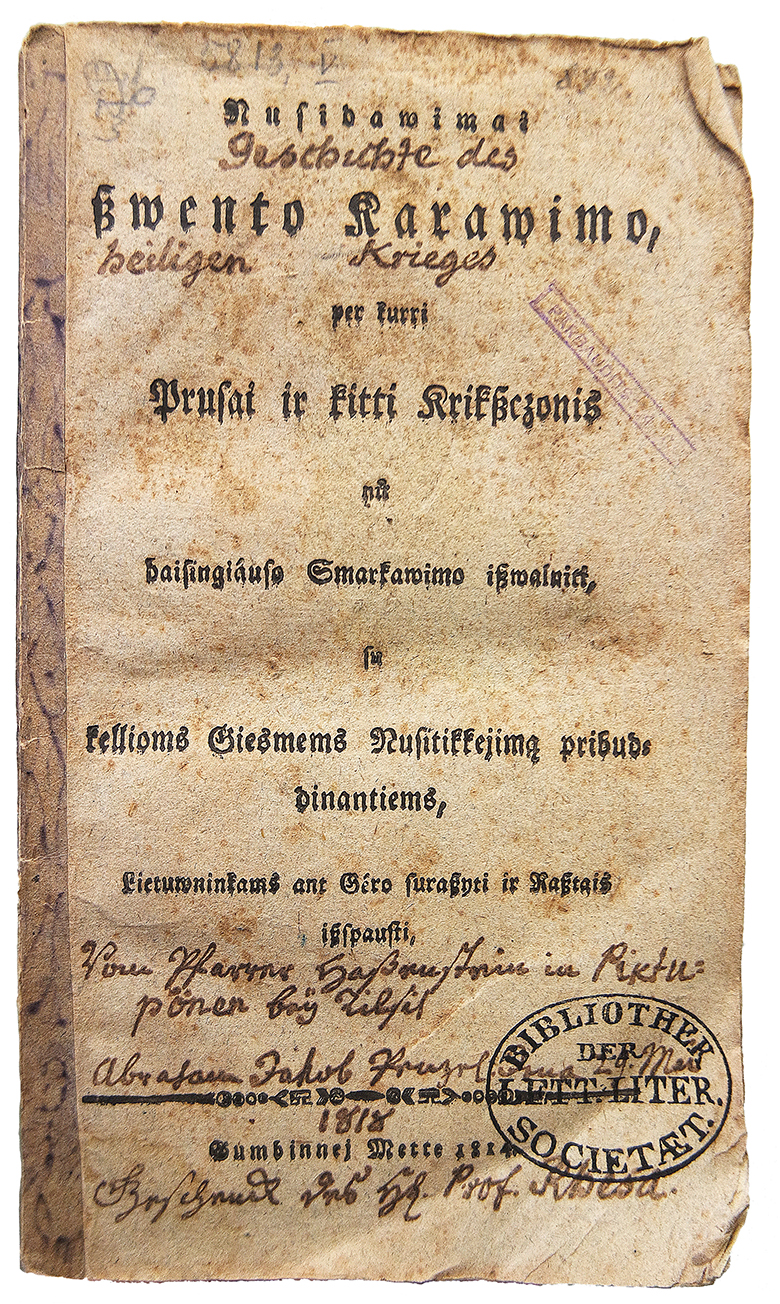 5813, V
Nusidawimai
Geschichte des
ßwento Karawimo,
heiligen Krieges
per kurri
Prusai ir kitti Krikßczonis
nů
daisingiáuso Smarkawimo ißwalniti,
su
kellioms Giesmems Nusitikkejimą pribud-
dinantiems,
Lietuwninkams ant Géro suraßyti ir Raßtais
ißspausti,
Vom Pfarrer Haßenstein in Piktu-
pönen bey Tilsit
Abraham Jakob Penzel 24. May
1818
Gumbinnej Mette 1814.
Geschenk des Hh. Prof. Rhesa.
BIBLIOTHEK
DER
LETT. LITER.
SOCIETÆT.